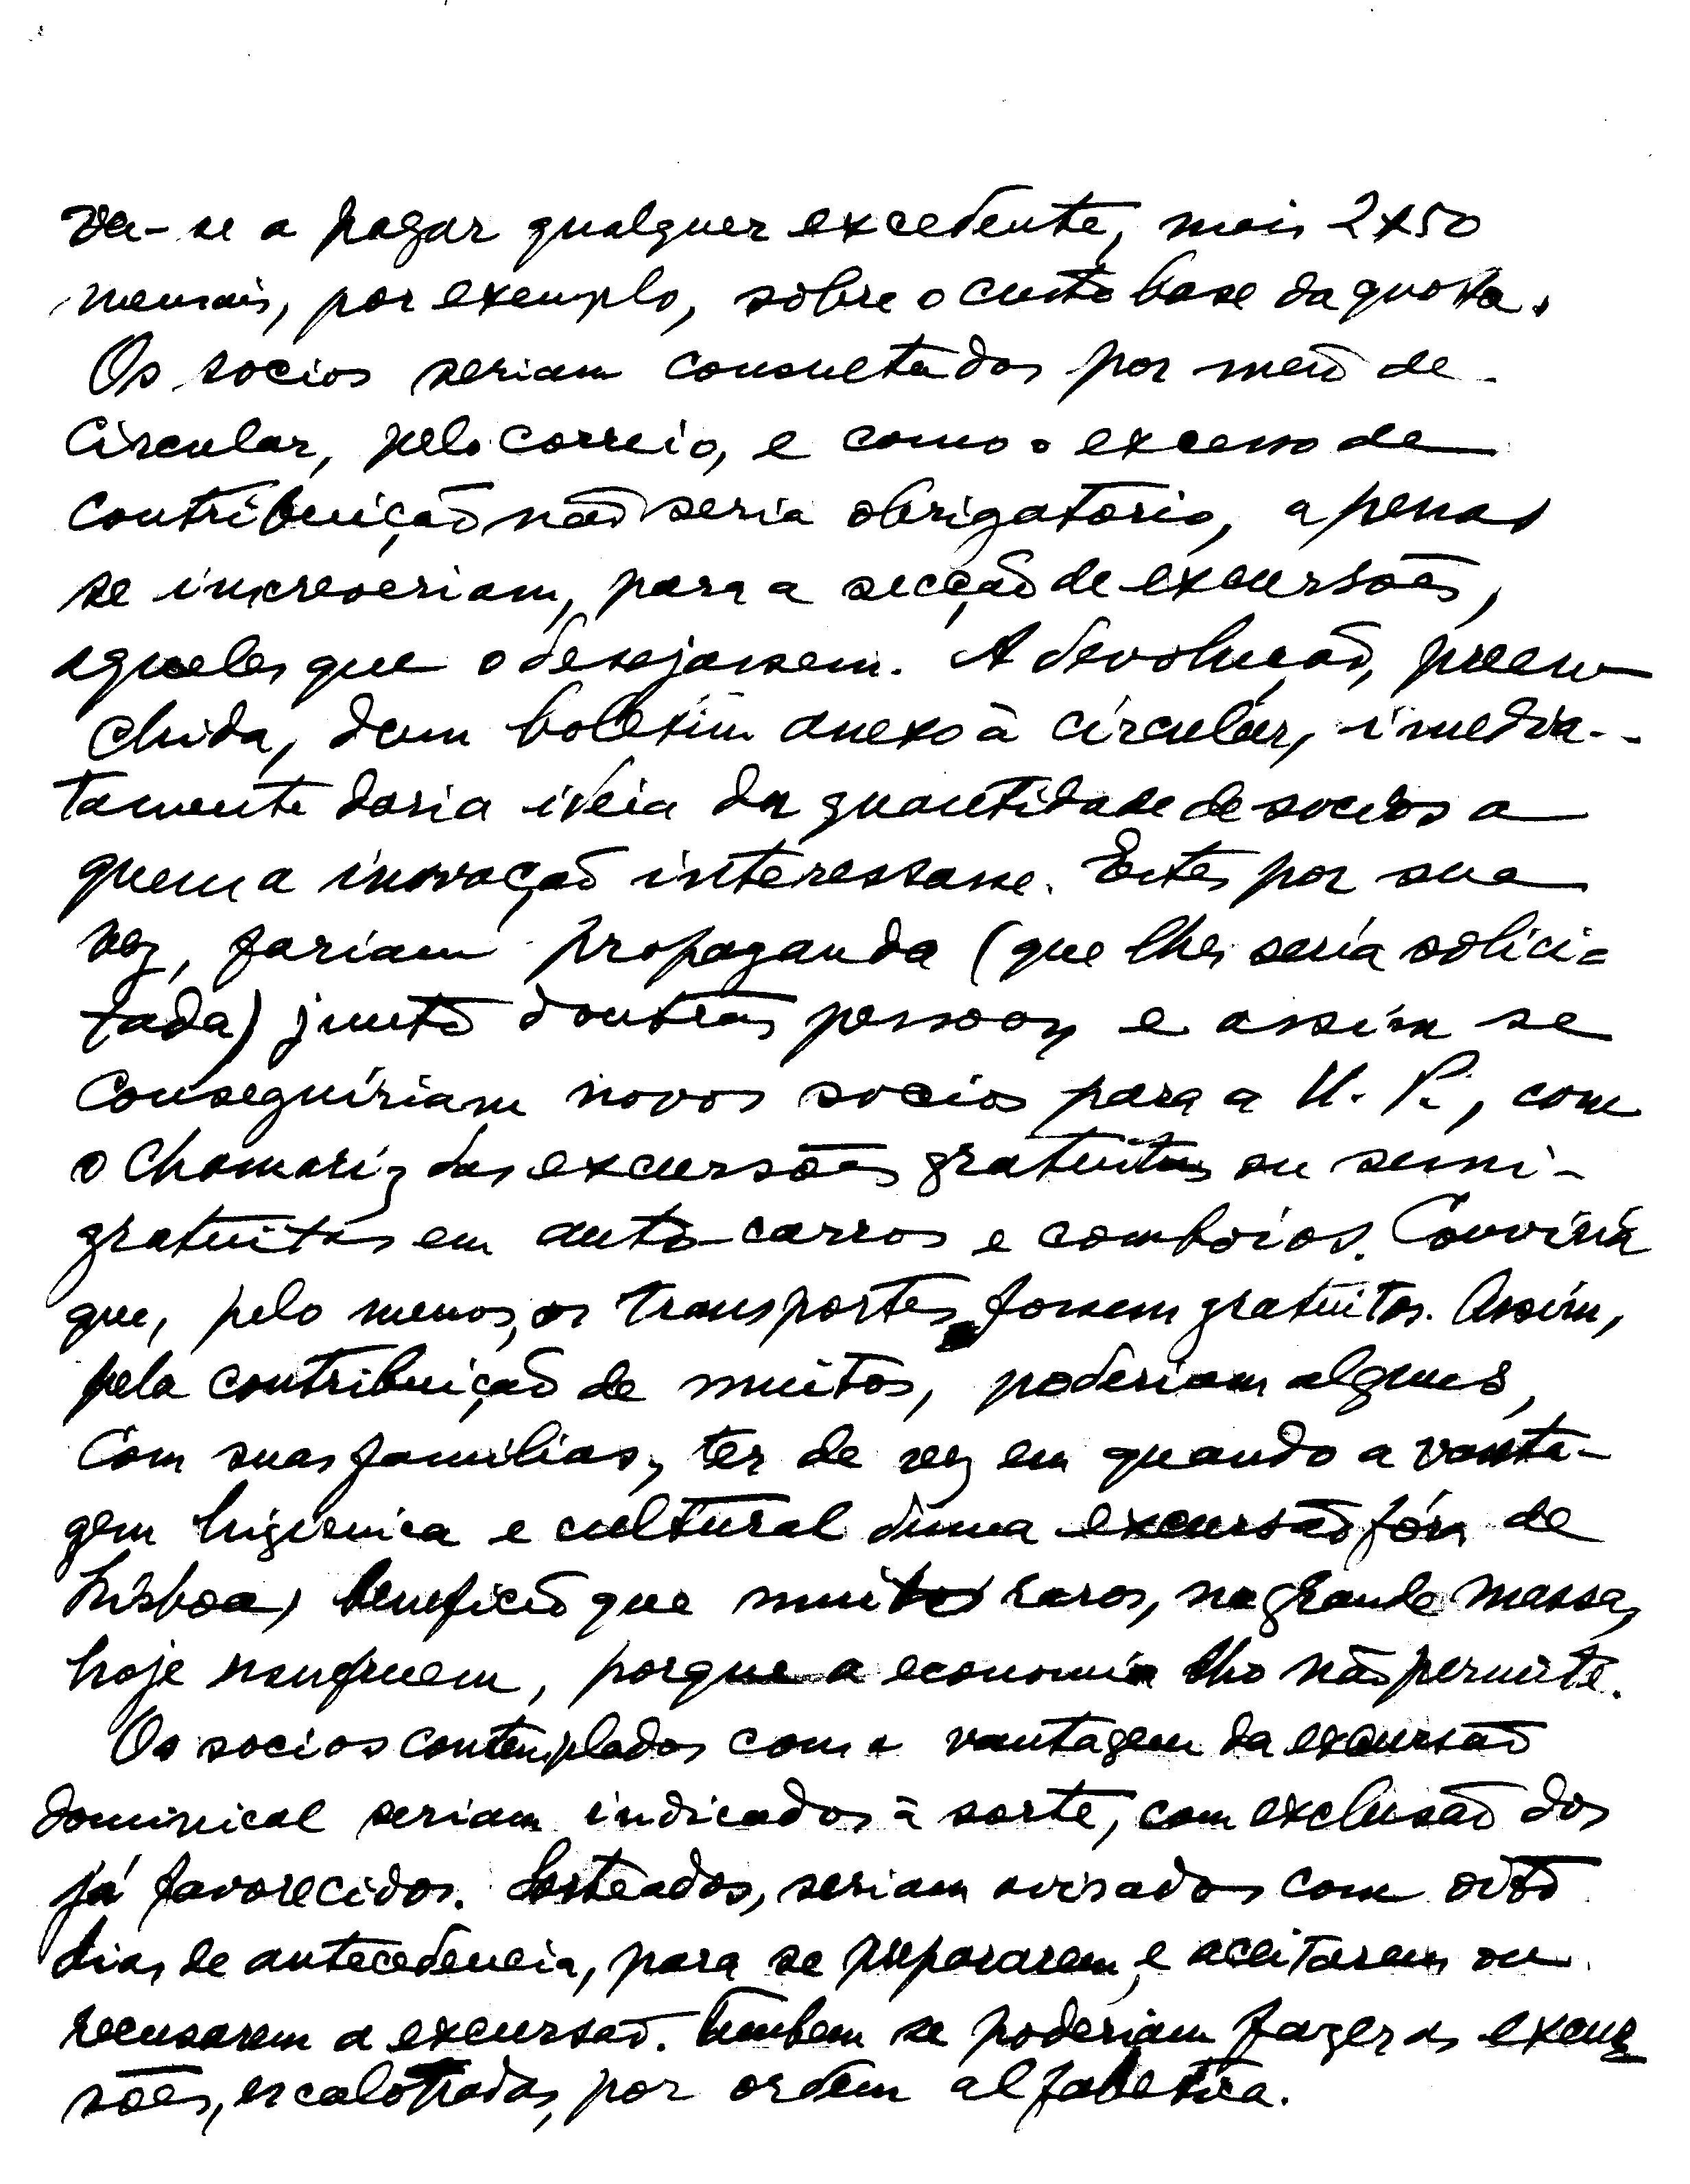 va-se a pagar qualquer excedente, mais 2$50
mensais, por exemplo, sôbre o custo base da quota.
Os socios seriam consultados por meio de
circular, pelo correio, e como o excesso de
contribuição não seria obrigatorio, apenas
se increveriam, para a secção de excursões,
aqueles que o desejassem. A devolução, preen-
chida, dum boletim anexo à circular, imedia-
tamente daria ideia da quantidade de socios a
quem a inovação interessasse. Estes por sua
vez, fariam propaganda (que lhes seria solici-
tada) junto doutras pessoas e assim se
conseguiriam novos socios para a U. P., com
o chamariz das excursões gratuitas ou semi-
gratuitas em auto-carros e comboios. Conviria
que, pelo menos, os transportes fossem gratuitos. Assim,
pela contribuição de muitos, poderiam alguns,
com suas familias, ter de vez em quando a vanta-
gem higiénica e cultural duma excursão fóra de
Lisboa, beneficio que muitos raros, na grande massa,
hoje usufruem, porque a economia lho não permite.
Os socios contemplados com a vantagem da excursão
dominical seriam indicados à sorte, com exclusão dos
já favorecidos. Sorteados, seriam avisados com oito
dias de antecedencia, para se prepararem, e aceitarem ou
recusarem a excursão. Tambem se poderiam fazer as excur-
sões, escalonadas, por ordem alfabetica.